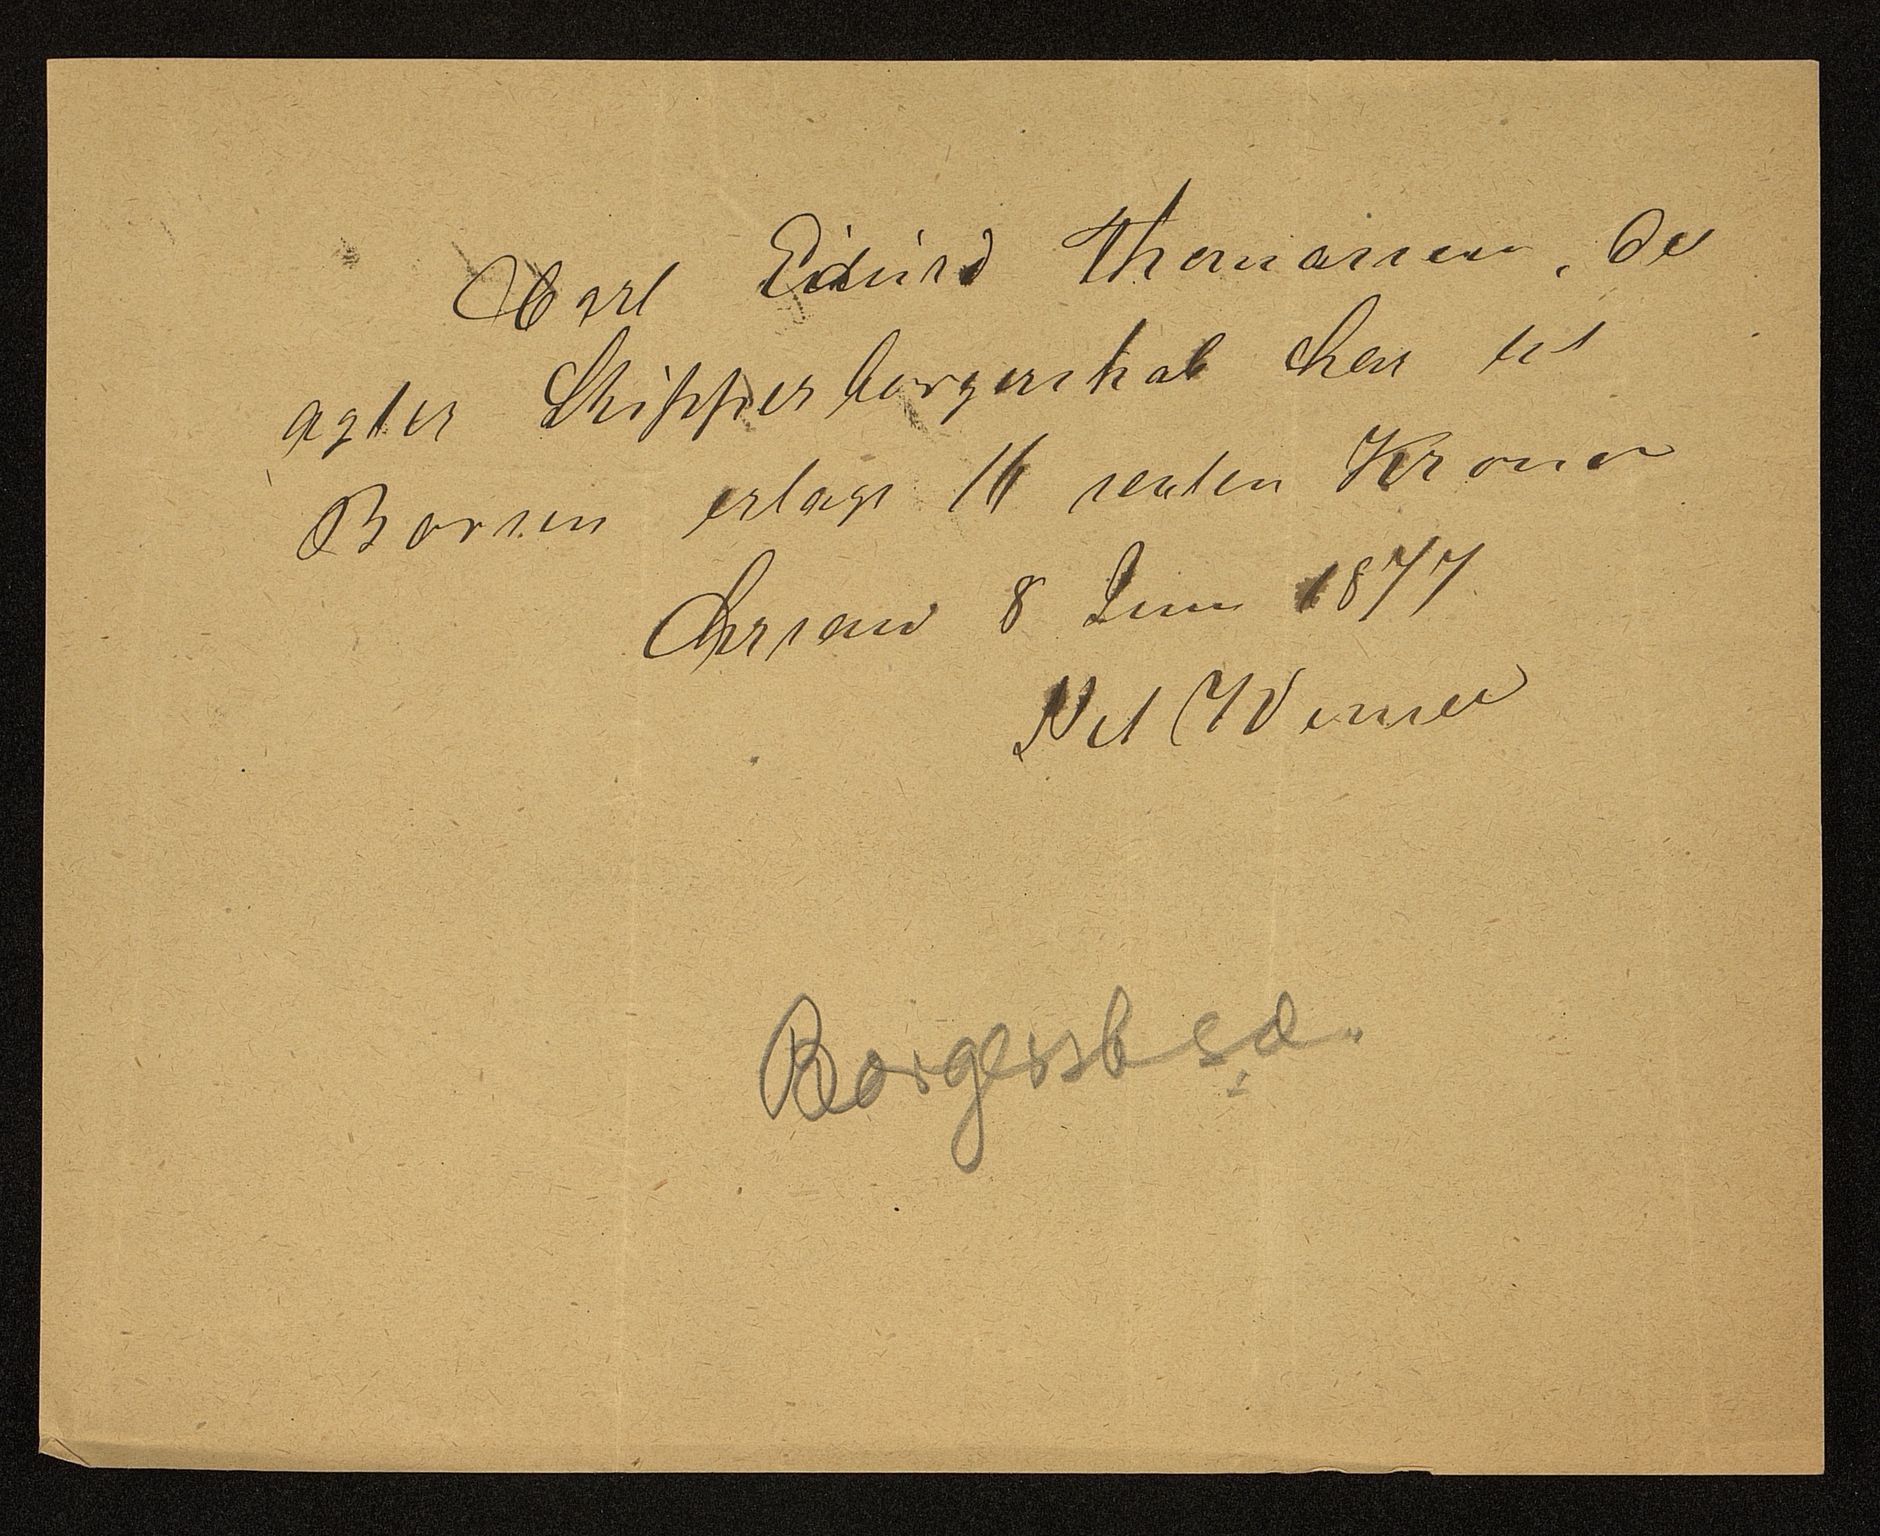 Carl Eduard Thomassen, der
agter Skipperborgerskab har til
Børsen erlagt 16 sexten Kroner
Chrsand 8 Juni 1877
Borgersk